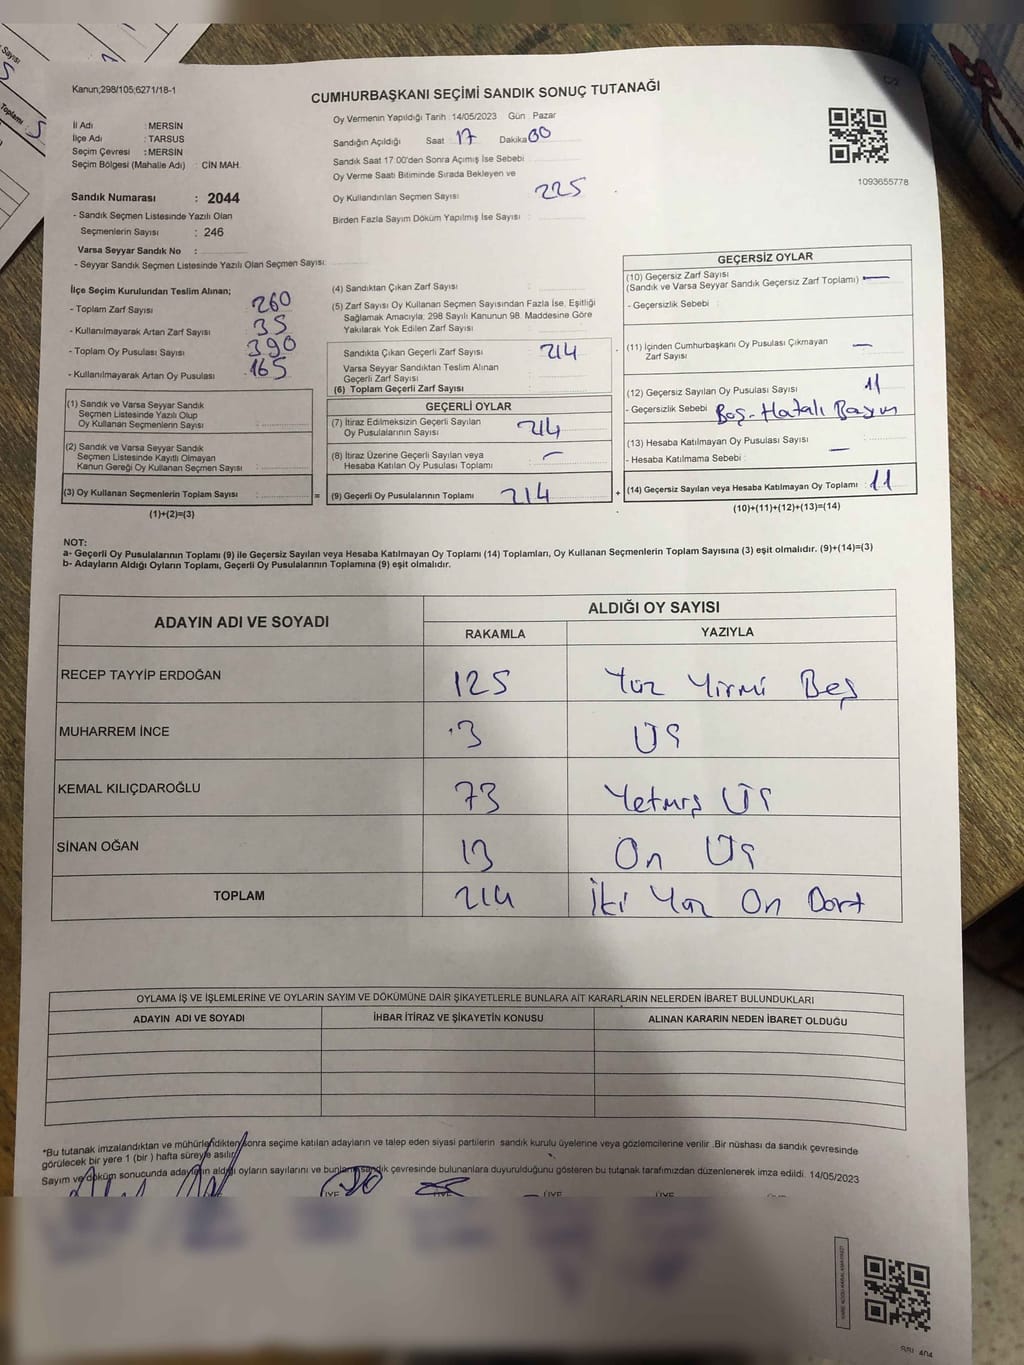 Kanun;298/105;6271/18-1
CUMHURBAŞKANI SEÇİMİ SANDIK SONUÇ TUTANAĞI
İl Adı : MERSİN
İlçe Adı : TARSUS
Seçim Çevresi : MERSİN
Seçim Bölgesi (Mahalle Adı) : CİN MAH.
Sandık Numarası : 2044
- Sandık Seçmen Listesinde Yazılı Olan
Seçmenlerin Sayısı : 246
Varsa Seyyar Sandık No :
- Seyyar Sandık Seçmen Listesinde Yazılı Olan Seçmen Sayısı:
Oy Vermenin Yapıldığı Tarih : 14/05/2023 Gün : Pazar
Sandığın Açıldığı Saat 17 Dakika 00
Sandık Saat 17:00'den Sonra Açımış İse Sebebi
Oy Verme Saati Bitiminde Sırada Bekleyen ve
Oy Kullandırılan Seçmen Sayısı : 225
Birden Fazla Sayım Döküm Yapılmış İse Sayısı :
1093655778
İlçe Seçim Kurulundan Teslim Alınan;
- Toplam Zarf Sayısı : 260
- Kullanılmayarak Artan Zarf Sayısı : 35
- Toplam Oy Pusulası Sayısı : 390
- Kullanılmayarak Artan Oy Pusulası : 165
(1) Sandık ve Varsa Seyyar Sandık
Seçmen Listesinde Yazılı Olup
Oy Kullanan Seçmenlerin Sayısı :
(2) Sandık ve Varsa Seyyar Sandık
Seçmen Listesinde Kayıtlı Olmayan
Kanun Gereği Oy Kullanan Seçmen Sayısı :
(3) Oy Kullanan Seçmenlerin Toplam Sayısı : =
(1)+(2)=(3)
(4) Sandıktan Çıkan Zarf Sayısı :
(5) Zarf Sayısı Oy Kullanan Seçmen Sayısından Fazla İse, Eşitliği
Sağlamak Amacıyla, 298 Sayılı Kanunun 98. Maddesine Göre
Yakılarak Yok Edilen Zarf Sayısı :
Sandıkta Çıkan Geçerli Zarf Sayısı : 214
Varsa Seyyar Sandıktan Teslim Alınan
Geçerli Zarf Sayısı :
(6) Toplam Geçerli Zarf Sayısı :
GEÇERLİ OYLAR
(7) İtiraz Edilmeksizin Geçerli Sayılan
Oy Pusulalarının Sayısı : 214
(8) İtiraz Üzerine Geçerli Sayılan veya
Hesaba Katılan Oy Pusulası Toplamı : —
(9) Geçerli Oy Pusulalarının Toplamı : 214 +
GEÇERSİZ OYLAR
(10) Geçersiz Zarf Sayısı
(Sandık ve Varsa Seyyar Sandık Geçersiz Zarf Toplamı) : —
- Geçersizlik Sebebi :
(11) İçinden Cumhurbaşkanı Oy Pusulası Çıkmayan
Zarf Sayısı : —
(12) Geçersiz Sayılan Oy Pusulası Sayısı : 11
- Geçersizlik Sebebi : Boş-Hatalı Basım
(13) Hesaba Katılmayan Oy Pusulası Sayısı : —
- Hesaba Katılmama Sebebi :
(14) Geçersiz Sayılan veya Hesaba Katılmayan Oy Toplamı : 11
(10)+(11)+(12)+(13)=(14)
NOT:
a- Geçerli Oy Pusulalarının Toplamı (9) ile Geçersiz Sayılan veya Hesaba Katılmayan Oy Toplamı (14) Toplamları, Oy Kullanan Seçmenlerin Toplam Sayısına (3) eşit olmalıdır. (9)+(14)=(3)
b- Adayların Aldığı Oyların Toplamı, Geçerli Oy Pusulalarının Toplamına (9) eşit olmalıdır.
ADAYIN ADI VE SOYADI ALDIĞI OY SAYISI
RAKAMLA YAZIYLA
RECEP TAYYİP ERDOĞAN 125 Yüz Yirmi Beş
MUHARREM İNCE 3 Üç
KEMAL KILIÇDAROĞLU 73 Yetmiş Üç
SİNAN OĞAN 13 On Üç
TOPLAM 214 İki Yüz On Dört
OYLAMA İŞ VE İŞLEMLERİNE VE OYLARIN SAYIM VE DÖKÜMÜNE DAİR ŞİKAYETLERLE BUNLARA AİT KARARLARIN NELERDEN İBARET BULUNDUKLARI
ADAYIN ADI VE SOYADI İHBAR İTİRAZ VE ŞİKAYETİN KONUSU ALINAN KARARIN NEDEN İBARET OLDUĞU
*Bu tutanak imzalandıktan ve mühürlendikten sonra seçime katılan adayların ve talep eden siyasi partilerin sandık kurulu üyelerine veya gözlemcilerine verilir .Bir nüshası da sandık çevresinde
görülecek bir yere 1 (bir ) hafta süreyle asılır.
Sayım ve döküm sonucunda adayların aldığı oyların sayılarını ve bunların sandık çevresinde bulunanlara duyurulduğunu gösteren bu tutanak tarafımızdan düzenlenerek imza edildi. 14/05/2023
ÜYE ÜYE ÜYE